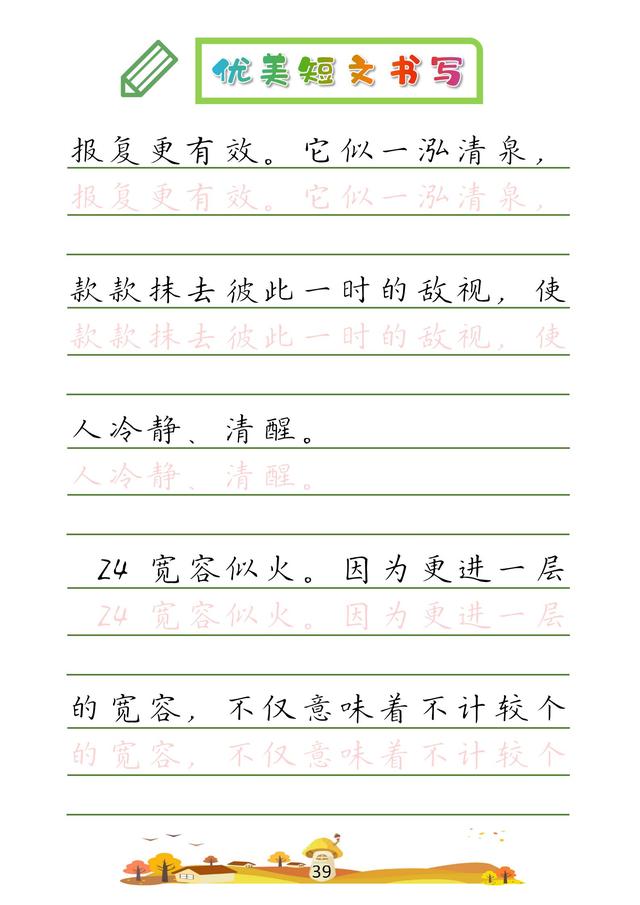 优美短文书写
报复更有效。它似一泓清泉，
报复更有效。它似一泓清泉，
款款抹去彼此一时的敌视，使
款款抹去彼此一时的敌视，使
人冷静、清醒。
人冷静、清醒。
24 宽容似火。因为更进一层
24 宽容似火。因为更进一层
的宽容，不仅意味着不计较个
的宽容，不仅意味着不计较个
39